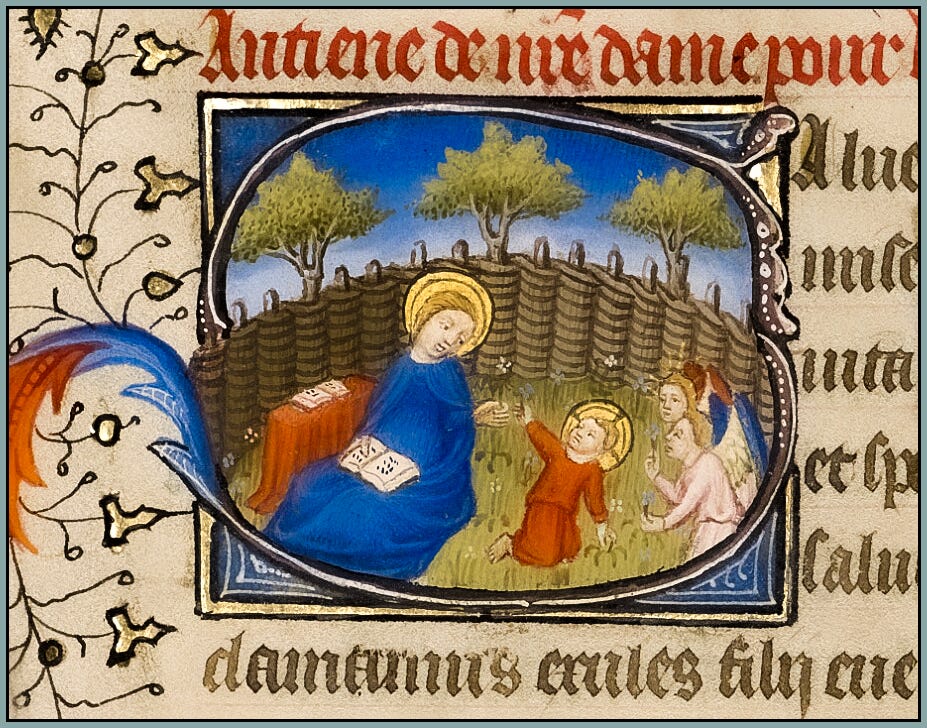 Antiene de nr̃e dame pour
Alue
miſe
uita
et ſpe
ſalu
clamamus exules filij eue